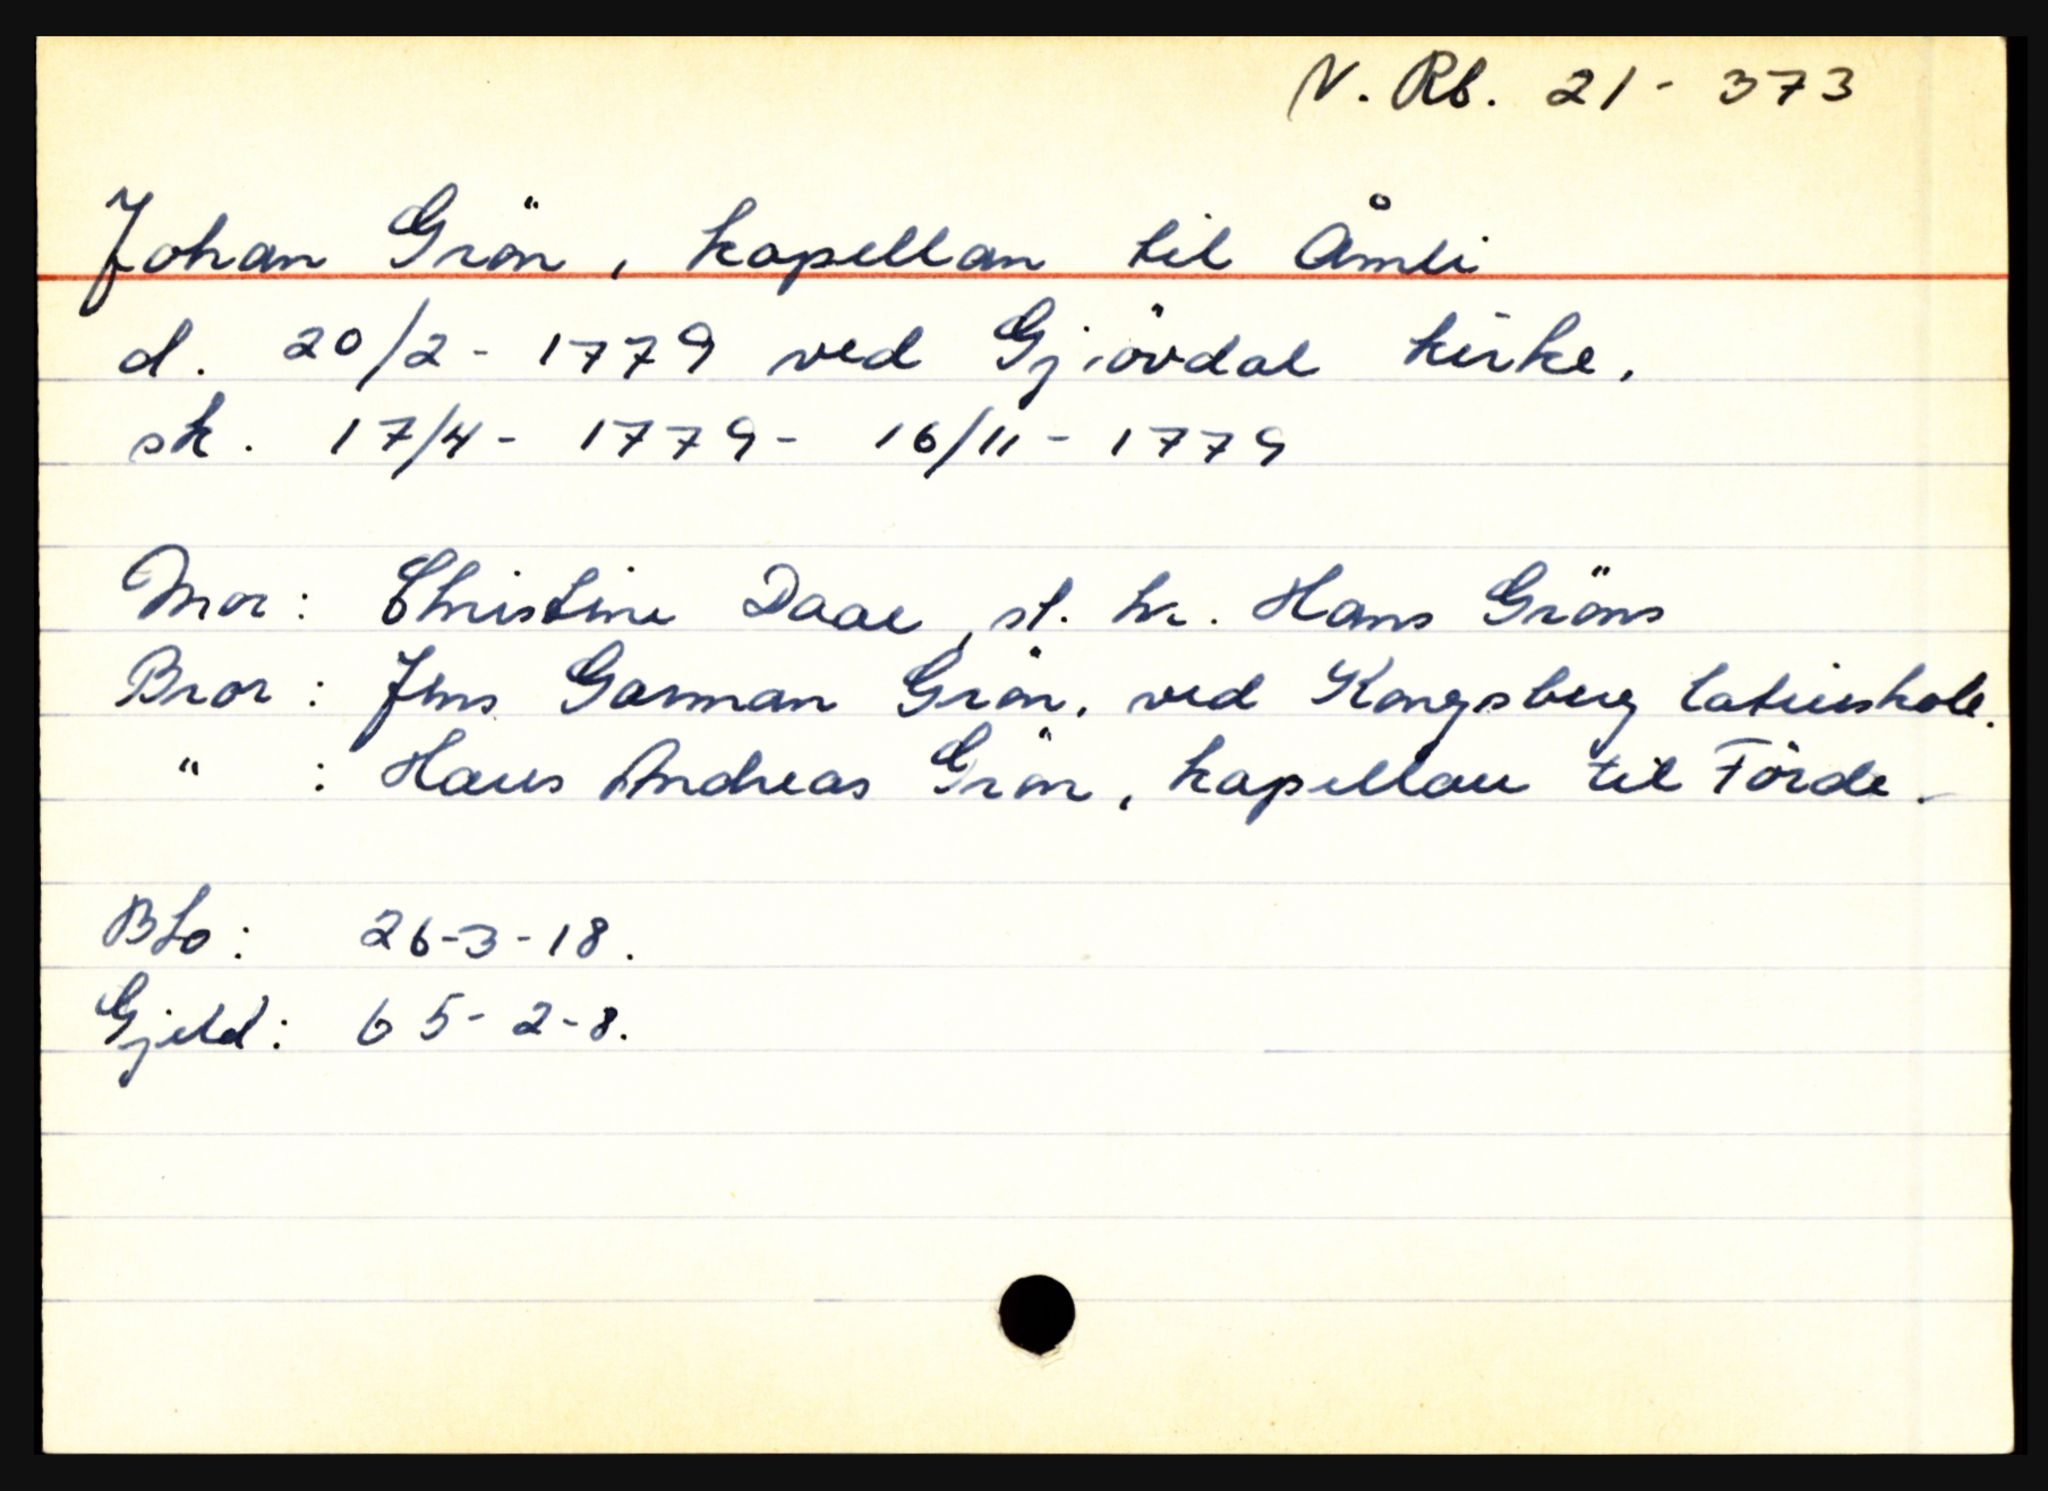 N. Rb. 21 - 373
Johan Grön, kapellan til Åmli
d. 20/2 - 1779 ved Gjövdal kirke.
sk. 17/4 - 1779 - 16/11 - 1779
Mor: Christine Daae, sl. hr. Hans Gröns
Bror: Jens Garman Grön, ved Kongsberg latinskole.
" : Hans Andreas Grön, kapellan til Förde.
Bto: 26-3-18.
Gjeld: 65-2-8.